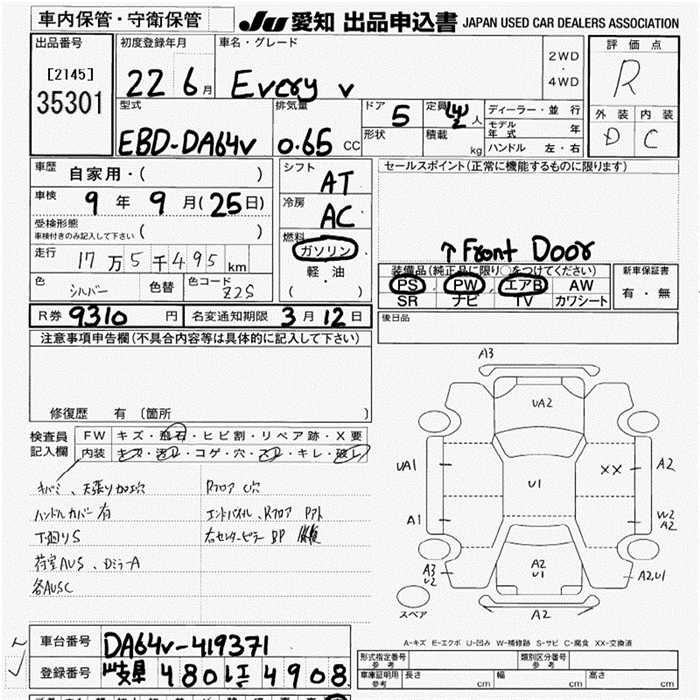 車内保管・守衛保管
JU 愛知 出品申込書 JAPAN USED CAR DEALERS ASSOCIATION
出品番号
[2145]
35301
初度登録年月
22 6月
車名・グレード
Every v
2WD
・
4WD
評価点
R
外装 内装
D C
型式
EBD-DA64v
排気量
0.65 CC
ドア 5
形状
定員 人
積載 kg
ディーラー・並行
モデル年式 年
ハンドル 左・右
車歴 自家用・( )
車検 9年 9月(25日)
受検形態
車検付きのみ記入して下さい ( )
走行 17万5千495 km
色 シルバー 色替 色コード Z2S
シフト AT
冷房 AC
燃料
ガソリン
軽・油
( )
セールスポイント(正常に機能するものに限ります)
↑Front Door
装備品(純正品に限り○をつけてください)
PS PW エアB AW
SR ナビ TV カワシート
新車保証書
有・無
R券 9310 円 名変通知期限 3月12日
後日品
注意事項申告欄(不具合内容等は具体的に記入して下さい)
修復歴 有(箇所 )
検査員
記入欄
FW キズ・飛石・ヒビ割・リペア跡・X要
内装 キズ・汚れ・コゲ・穴・スレ・キレ・破レ
キバミ、天張り加工穴
ハンドルカバー有
下廻りS
荷室AUS、DミラーA
各AUSC
Rフロア C穴
エンドパネル、Rフロア
右センターピラー BP
A3
UA2
UA1
U1
XX
A2
A1
A2
A3
U2
A2
U1
A2,U1
A2
スペア
A-キズ E-エクボ U-凹み W-補修跡 S-サビ C-腐食 XX-交換済
車台番号 DA64v-419371
登録番号 岐阜 480 4908
形式指定番号
参考
類別区分番号
参考
車庫証明用
参考
長さ cm 幅 cm 高さ cm